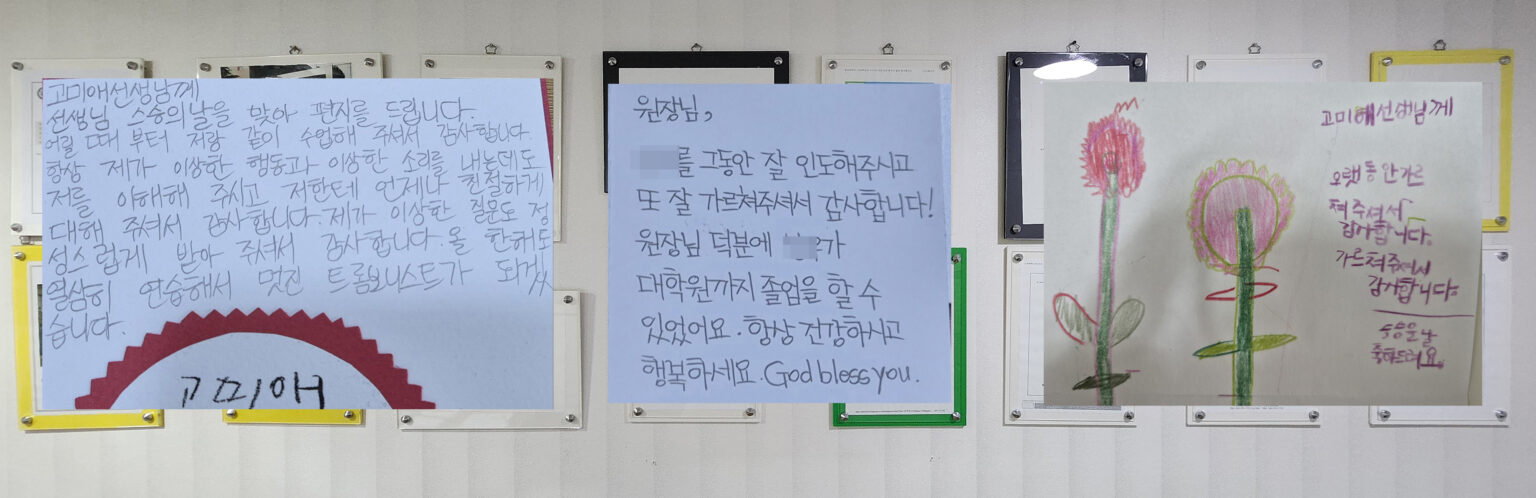 고미애선생님께
선생님 스승의날을 맞아 편지를 드립니다.
어릴 때 부터 저랑 같이 수업해 주셔서 감사합니다.
항상 제가 이상한 행동과 이상한 소리를 내는데도
저를 이해해 주시고 저한테 언제나 친절하게
대해 주셔서 감사합니다. 제가 이상한 질문도 정
성스럽게 받아 주셔서 감사합니다. 올 한해도
열심히 연습해서 멋진 트롬보니스트가 되겠
습니다.
고미애
원장님,
를 그동안 잘 인도해주시고
또 잘 가르쳐주셔서 감사합니다!
원장님 덕분에 가
대학원까지 졸업을 할 수
있었어요. 항상 건강하시고
행복하세요. God bless you.
고미애선생님께
오랫동안가르
쳐주셔서
감사합니다.
가르쳐주셔서
감사합니다.
스승은날
축하드려요.